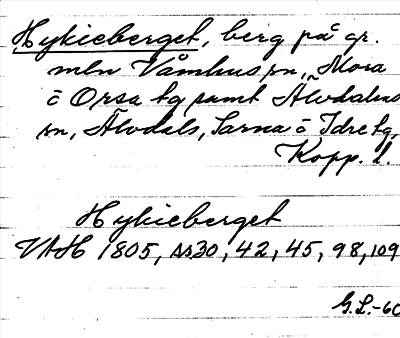 Hykieberget, berg på gr.
mln Våmhus sn, Mora
o Orsa tg samt Älvdalens
sn, Älvdals, Särna o Idre tg,
Kopp. l.
Hykieberget
VAH 1805, ss 30, 42, 45, 98, 109
G.L.-60